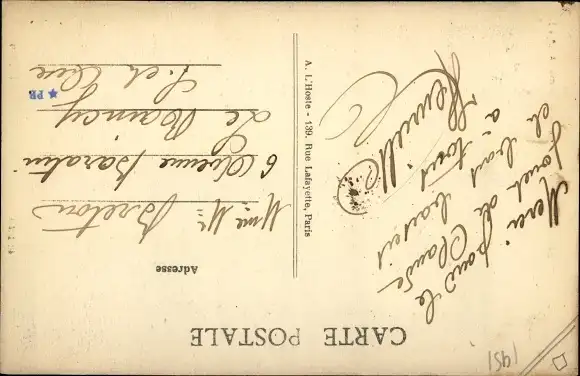 CARTE POSTALE
Adresse
Mme Mr Breton
6 Avenue Baratin
Le Raincy
S. et Oise
A. L'Hoste - 139, Rue Lafayette, Paris
Merci pour le
jouet de Claude
et bons baisers
a tous
★ PR
1951